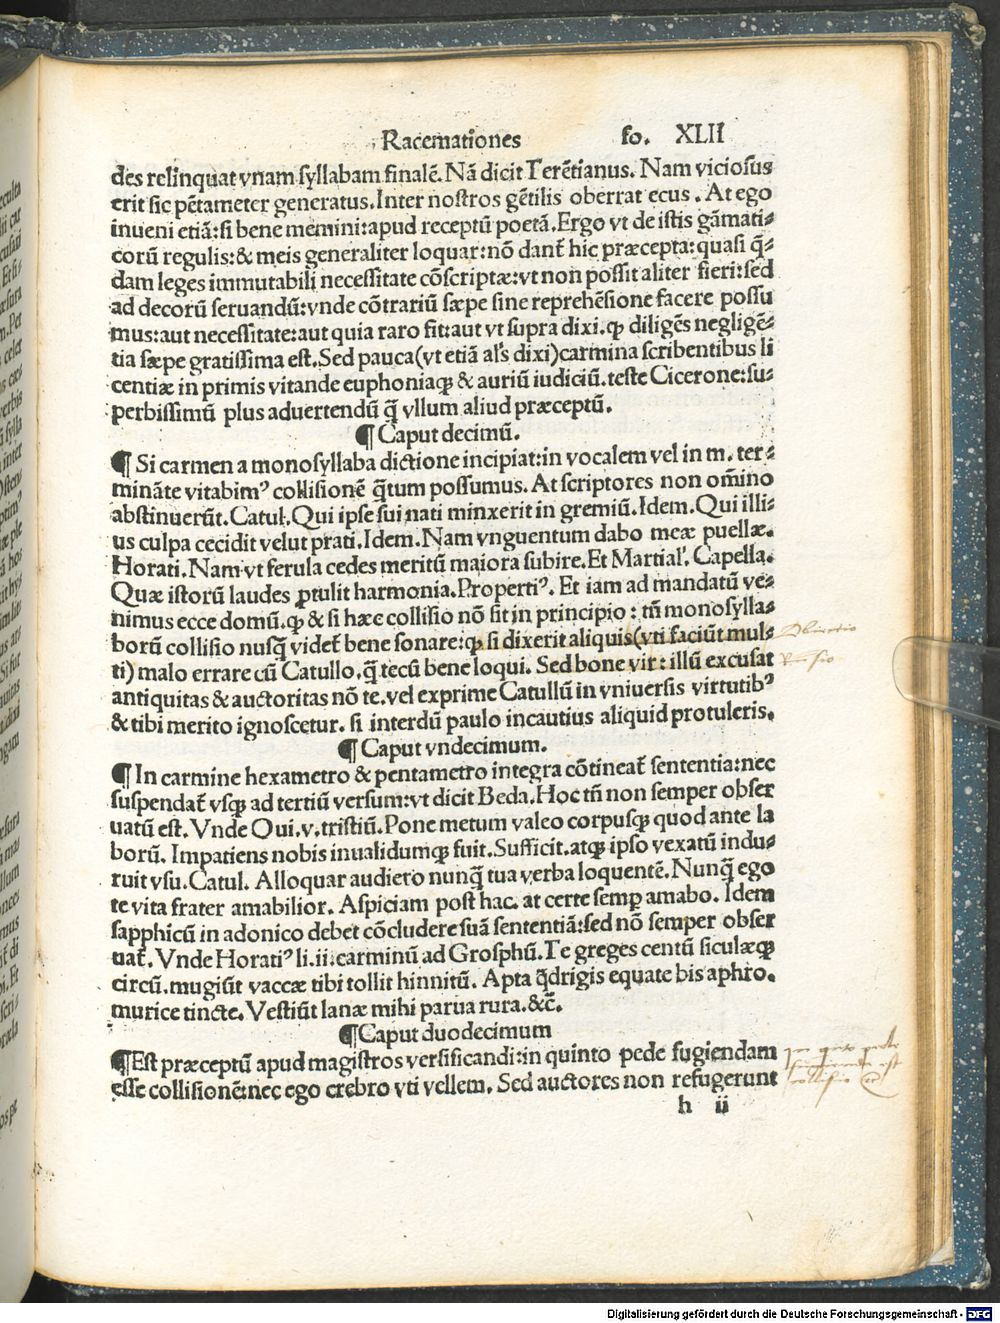 Racemationes fo. XLII
des relinquat vnam syllabam finalē. Nā dicit Terētianus. Nam viciosus
erit sic pētameter generatus. Inter nostros gētilis oberrat ecus. At ego
inueni etiā: si bene memini: apud receptū poetā. Ergo vt de istis gāmati⸗
corū regulis: & meis generaliter loquar: nō dant̄ hic præcepta: quasi q̄⸗
dam leges immutabili necessitate cōscriptæ: vt non possit aliter fieri: sed
ad decorū seruandū: vnde cōtrariū sæpe sine reprehēsione facere possu
mus: aut necessitate: aut quia raro fit: aut vt supra dixi. ꝙ diligēs negligē⸗
tia sæpe gratissima est. Sed pauca (vt etiā al's dixi) carmina scribentibus li
centiæ in primis vitande euphoniaqꝫ & auriū iudiciū. teste Cicerone: su⸗
perbissimū plus aduertendū q̄ vllum aliud præceptū.
¶ Caput decimū.
¶ Si carmen a monosyllaba dictione incipiat: in vocalem vel in m. ter⸗
mināte vitabimꝰ collisionē q̄tum possumus. At scriptores non om̄ino
abstinuerūt. Catul. Qui ipse sui nati minxerit in gremiū. Idem. Qui illi⸗
us culpa cecidit velut prati. Idem. Nam vnguentum dabo meæ puellæ.
Horati. Nam vt ferula cedes meritū maiora subire. Et Martial'. Capella.
Quæ istorū laudes ꝓtulit harmonia. Propertiꝰ. Et iam ad mandatū ve⸗
nimus ecce domū. ꝙ & si hæc collisio nō sit in principio: tn̄ monosylla⸗
borū collisio nusq̄ videt̄ bene sonare: ꝙ si dixerit aliquis (vti faciūt mul⸗
ti) malo errare cū Catullo. q̄ tecū bene loqui. Sed bone vir: illū excusat
antiquitas & auctoritas nō te. vel exprime Catullū in vniuersis virtutibꝰ
& tibi merito ignoscetur. si interdū paulo incautius aliquid protuleris.
¶ Caput vndecimum.
¶ In carmine hexametro & pentametro integra cōtineat̄ sententia: nec
suspendat̄ vsqꝫ ad tertiū versum: vt dicit Beda. Hoc tn̄ non semper obser
uatū est. Vnde Oui. v. tristiū. Pone metum valeo corpusqꝫ quod ante la
borū. Impatiens nobis inualidumqꝫ fuit. Sufficit. atqꝫ ipso vexatū indu⸗
ruit vsu. Catul. Alloquar audiero nunq̄ tua verba loquentē. Nunq̄ ego
te vita frater amabilior. Aspiciam post hac. at certe semꝑ amabo. Idem
sapphicū in adonico debet cōcludere suā sententiā: sed nō semper obser
uat̄. Vnde Horatiꝰ li. ii. carminū ad Grosphū. Te greges centū siculæqꝫ
circū. mugiūt vaccæ tibi tollit hinnitū. Apta q̄drigis equate bis aphro.
murice tincte. Vestiūt lanæ mihi parua rura. &c̄.
¶ Caput duodecimum
¶ Est præceptū apud magistros versificandi: in quinto pede fugiendam
esse collisionē: nec ego crebro vti vellem. Sed auctores non refugerunt
h ii
Digitalisierung gefördert durch die Deutsche Forschungsgemeinschaft - DFG